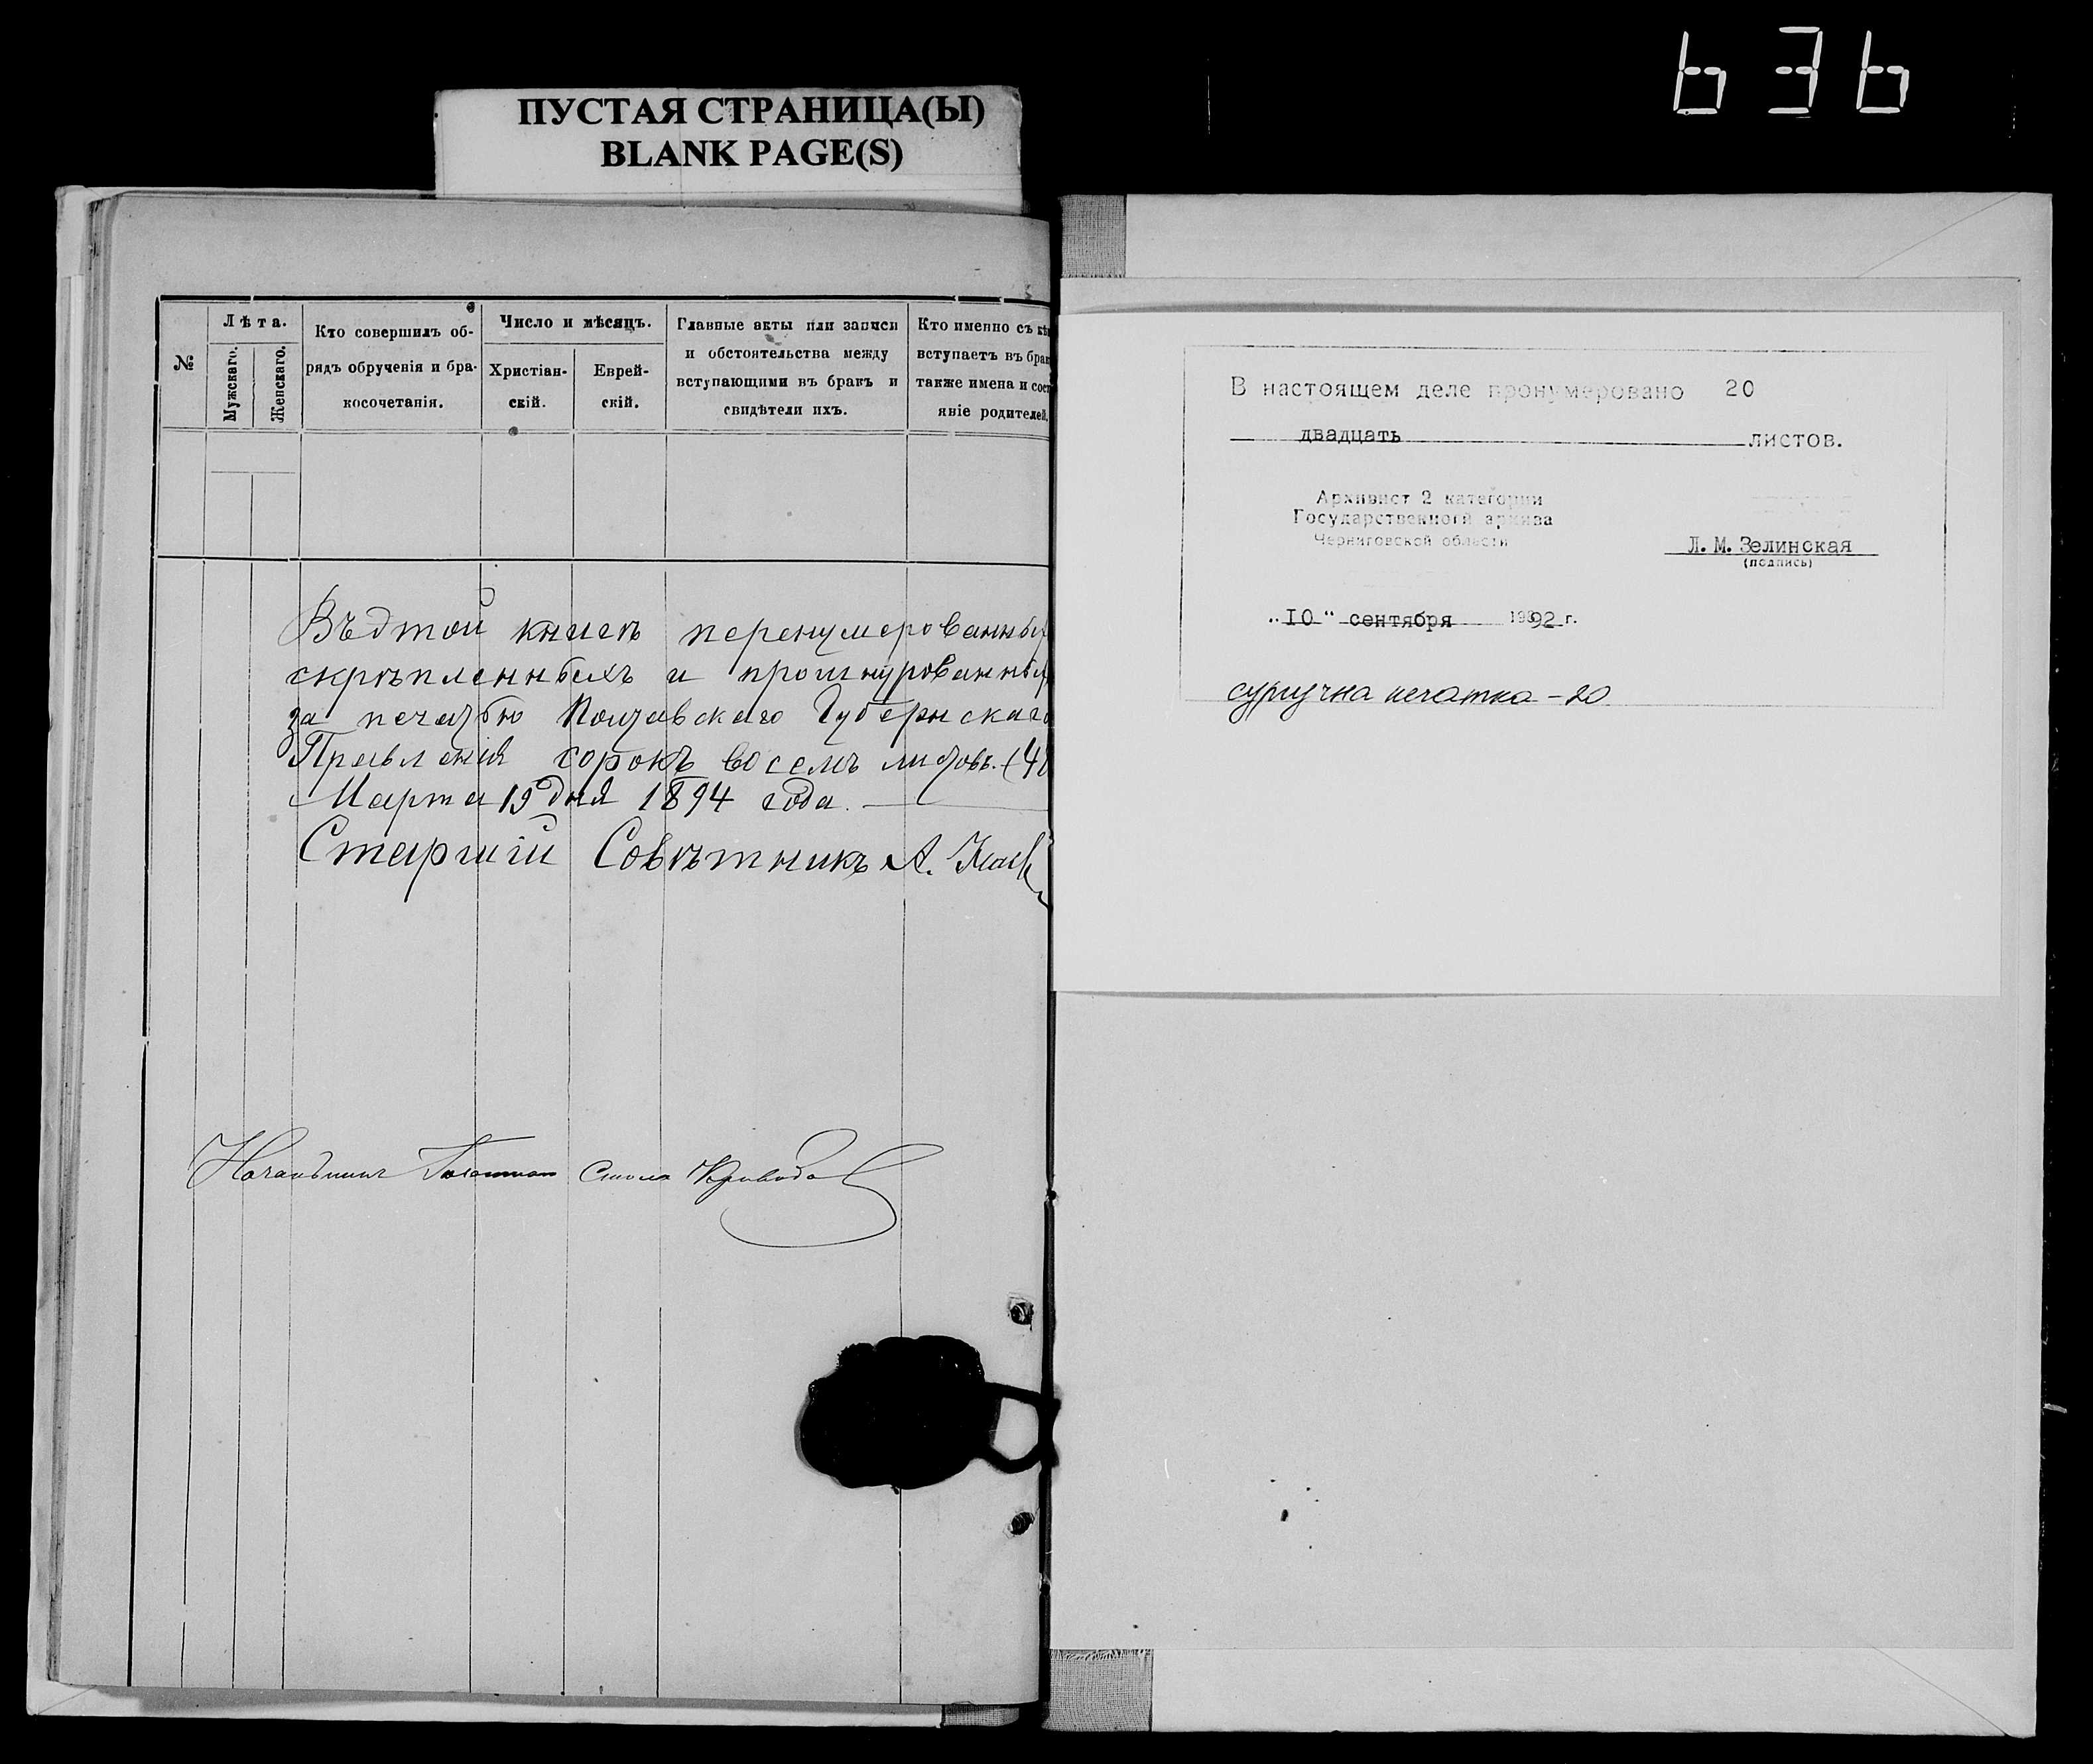 636
ПУСТАЯ СТРАНИЦА(Ы)
BLANK PAGE(S)
№
Лѣта.
Мужскаго.
Женскаго.
Кто совершилъ об-
рядъ обрученія и бра-
косочетанія.
Число и мѣсяцъ.
Христіан-
скій.
Еврей-
скій.
Главные акты или записи
и обстоятельства между
вступающими въ бракъ и
свидѣтели ихъ.
Кто именно съ кѣ
вступаетъ въ брак
также имена и сост
яніе родителей.
Въ этой книгѣ перенумерованны
скрѣпленныхъ и прошнурованны
за печатью Полтавскаго Губернскаго
Правленія сорокъ восемъ листовъ. (48
Марта 19 дня 1894 года.
Старшій Совѣтникъ А.
Начальникъ Стола
В настоящем деле пронумеровано 20
двадцать листов.
Архивист 2 категории
Государственного архива
Черниговской области
Л.М.Зелинская
(подпись)
„10“ сентября 1992 г.
сургучна печатка - 20